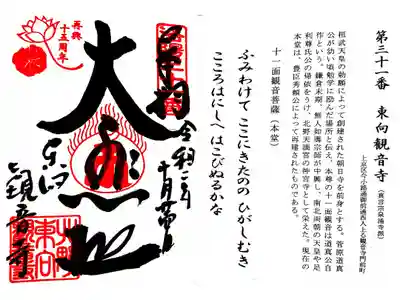 第三十一番 東向観音寺(真言宗泉涌寺派)
上京区今小路通御前通西入上る観音寺門前町
桓武天皇の勅願によって創建された朝日寺を前身とする。菅原道真
公が幼い頃勉学に励んだ場所と伝え、本尊の十一面観音は道真公自
作という。鎌倉末期、無人如導宗師が中興し、南北両朝の天皇や足
利尊氏公の帰依をうけ、北野天満宮の神宮寺として栄えた。現在の
本堂は、豊臣秀頼公によって再建されたものである。
十一面観音菩薩(本堂)
ふみわけて ここにきたの の ひがしむき
こころはにしへ はこびぬるかな
再興
十五周年
奉拝
令和
大悲
東向
観音寺